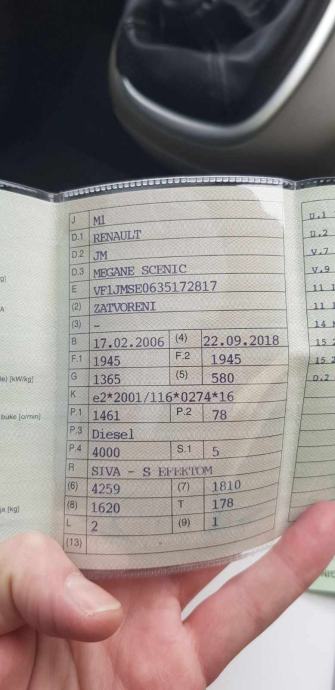 J M1
D.1 RENAULT
D.2 JM
D.3 MEGANE SCENIC
E VF1JMSE0635172817
(2) ZATVORENI
(3) -
B 17.02.2006 (4) 22.09.2018
F.1 1945 F.2 1945
G 1365 (5) 580
K e2*2001/116*0274*16
P.1 1461 P.2 78
P.3 Diesel
P.4 4000 S.1 5
R SIVA - S EFEKTOM
(6) 4259 (7) 1810
(8) 1620 T 178
L 2 (9) 1
(13)
g]
A
le) [kW/kg]
buke [o/min]
ja [kg]
U.1
U.2
V.7
V.9
11 1
11
14
15.2
15.2